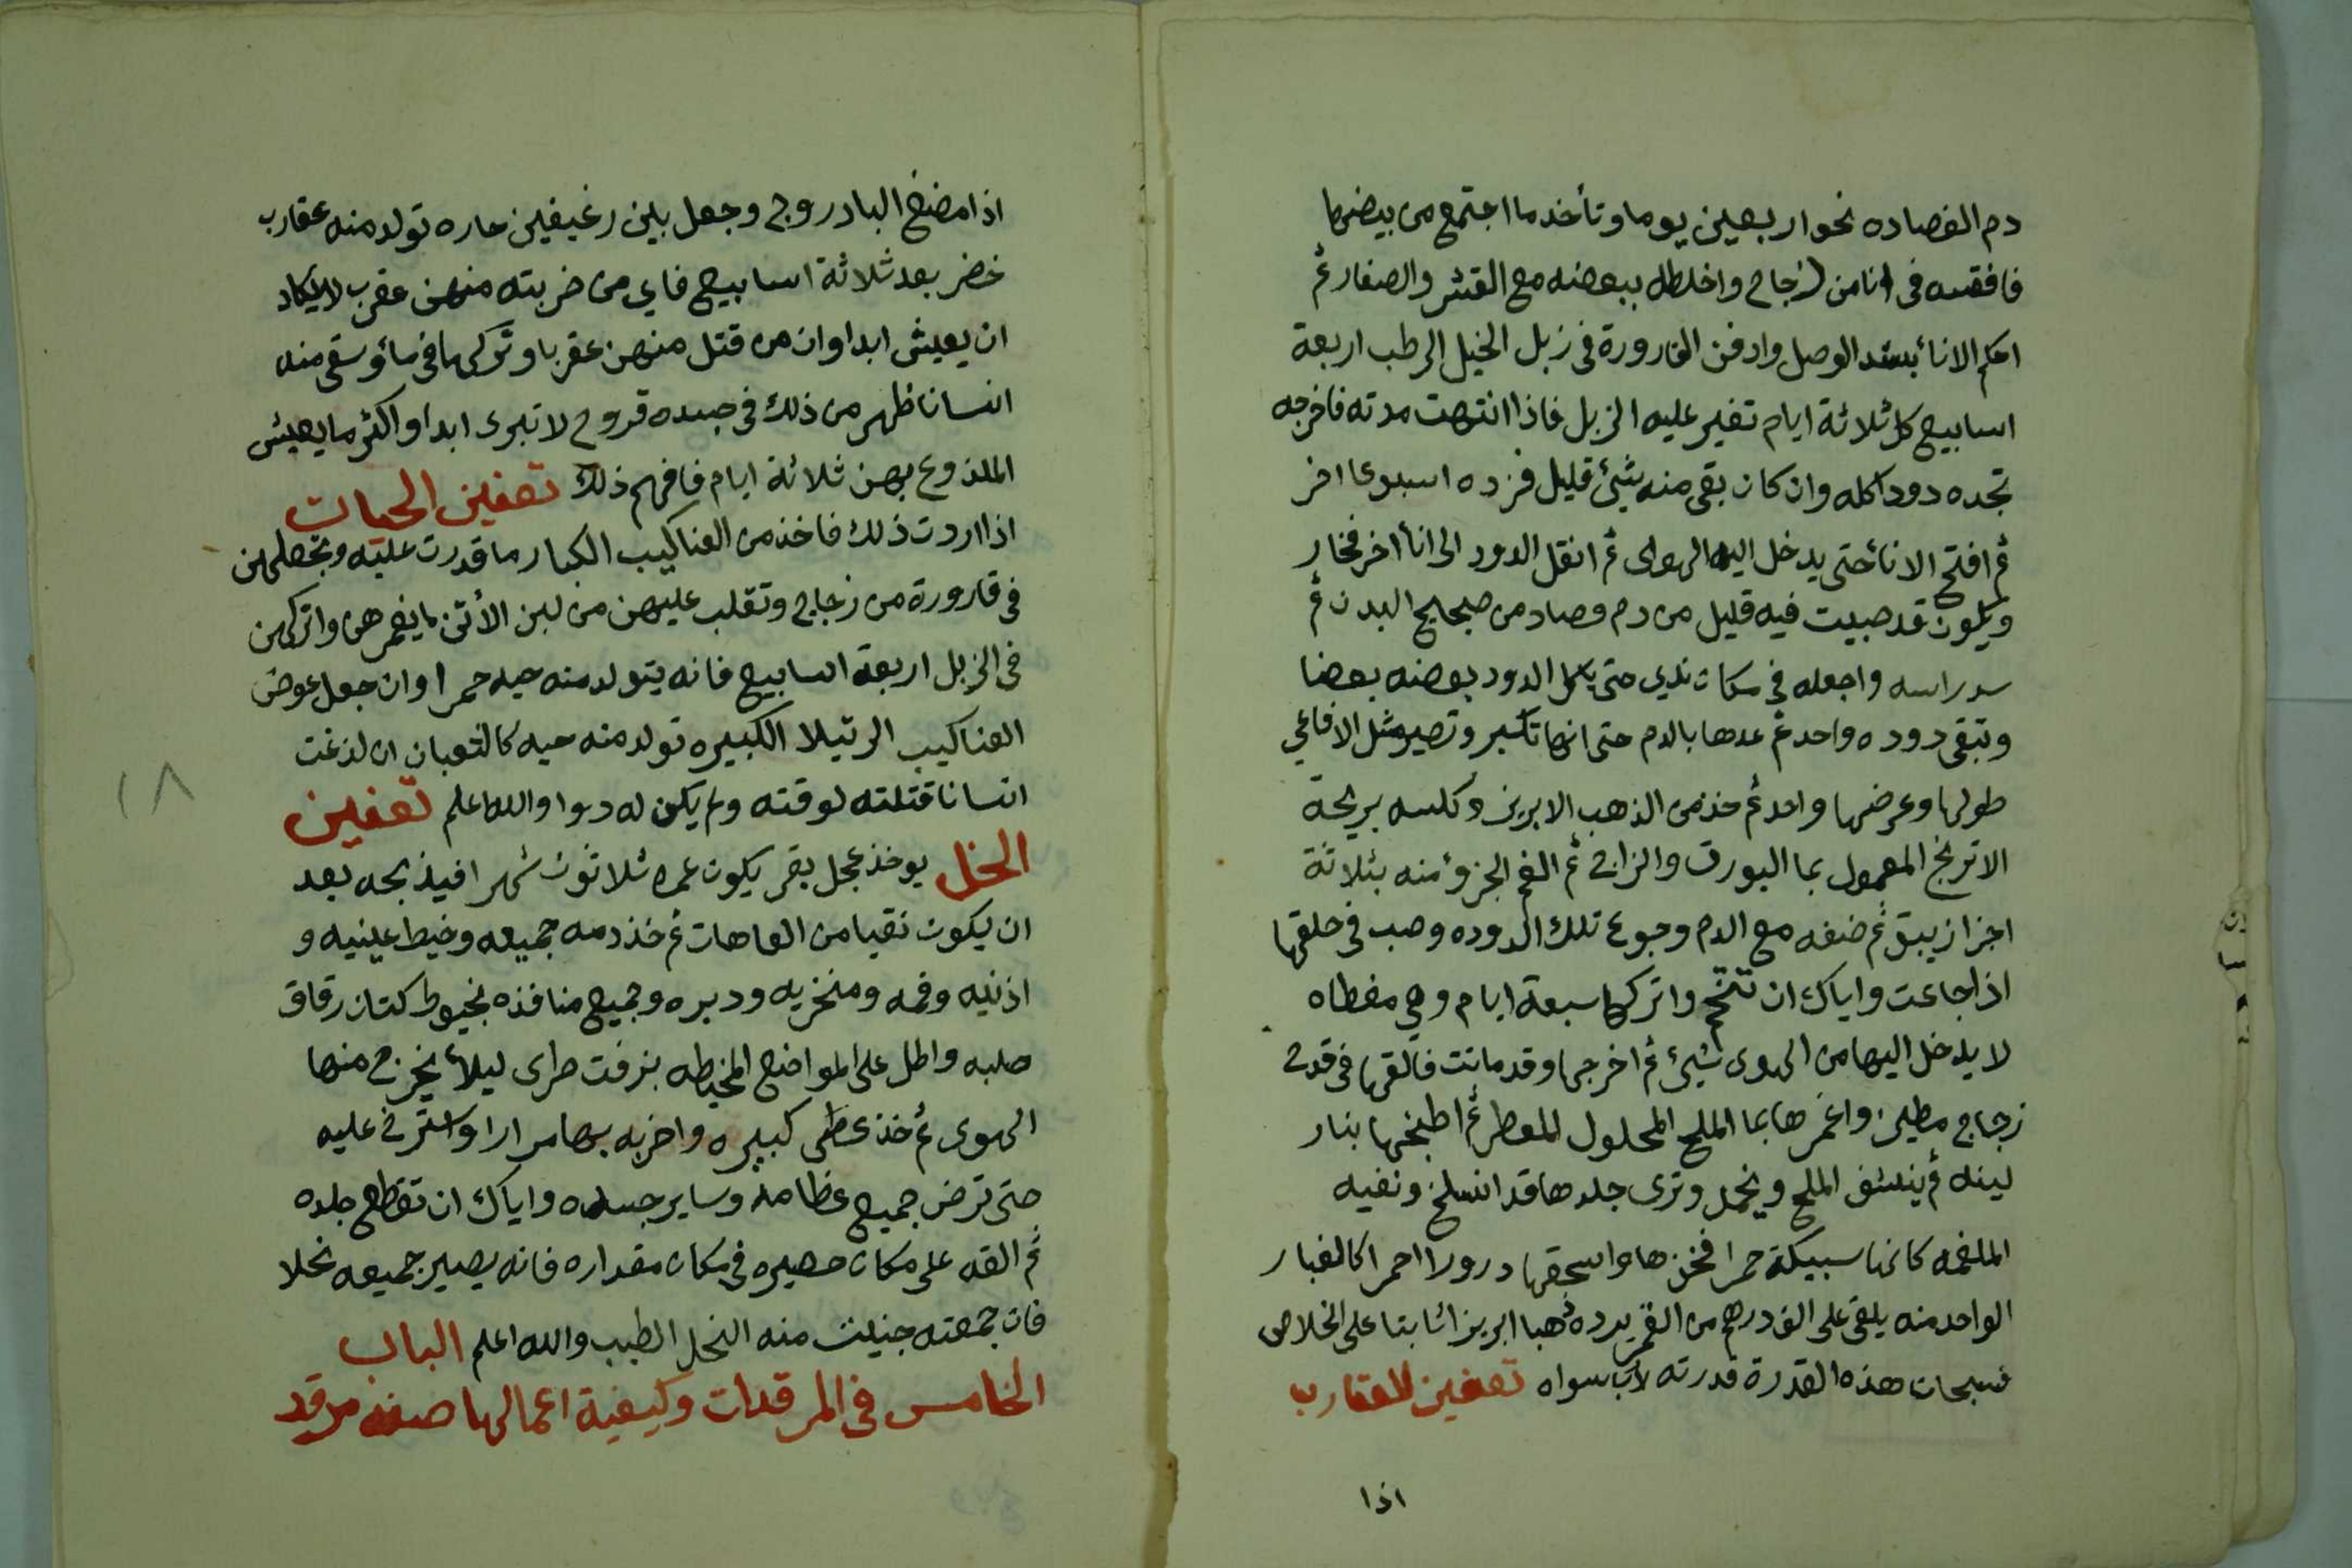 دم الفصاده نحو اربعين يوما وتأخذ ما اجتمع من بيضها
فافقسه فى انا من زجاج واخلطه ببعضه مع القشر والصفار ثم
احكم الانأ بشد الوصل وادفن القارورة فى زبل الخيل الرطب اربعة
اسابيع كل ثلاثة ايام تغير عليه الزبل فاذا انتهت مدته فاخرجه
تجده دودا كله وان كان بقى منه شئ قليل فزده اسبوعا اخر
ثم افتح الانأ حتى يدخل اليه الهوى ثم انقل الدود الى انأ اخر فخار
ويكون قد صبيت فيه قليل من دم فصاد من صحيح البدن ثم
سد راسه واجعله فى مكان ندي حتى ياكل الدود بعضه بعضا
وتبقى دوده واحد ثم عدها بالدم حتى انها تكبر وتصير مثل الافاعي
طولها وعرضها واحد ثم خذ من الذهب الابريز وكلسه بريحة
الاترنج المعمول بما البورق والزاج ثم الغم الجزؤ منه بثلاثة
اجزا زيبق ثم ضفه مع الدم وجوع تلك الدوده وصب فى حلقها
اذا جاعت واياك ان تتخم واتركها سبعة ايام وهي مغطاه
لا يدخل اليها من الهوى شيئ ثم اخرجها وقد ماتت فالقها فى قدح
زجاج مطين واغمرها بما الملح المحلول المقطر ثم اطبخها بنار
لينه ثم ينشف الملح وينحل وترى جلدها قد انسلخ ونفيه
الملغمه كانها سبيكة حمرا فخذها واسحقها درورا احمرا كالغبار
الواحد منه يلقى على الف درهم من القمر يرده ذهبا ابريزا ثابتا على الخلاص
فسبحان هذه القدرة قدرته لا رب سواه تعفين العقارب
اذا
اذا مضغ البادروج وجعل بين رغيفين حاره تولد منه عقارب
خضر بعد ثلاثة اسابيع فاي من ضربته منهن عقرب لا يكاد
ان يعيش ابدا وان من قتل منهن عقربا وتركها فى مأ وسقى منه
انسانا ظهر من ذلك فى جسده قروح لا تبرى ابدا واكثر ما يعيش
الملذوع بهن ثلاثة ايام فافهم ذلك تعفين الحيات
اذا اردت ذلك فاخذ من العناكيب الكبار ما قدرت عليه وتجعلهن
فى قارورة من زجاج وتقلب عليهن من لبن الأتن ما يغمرهن واتركهن
فى الزبل اربعة اسابيع فانه يتولد منه حيه حمرا وان جعل عوض
العناكيب الرتيلا الكبيره تولد منه حيه كالثعبان ان لذغت
انسانا قتلته لوقته ولم يكن له دوا والله اعلم تعفين
النحل يوخذ عجل بقر يكون عمره ثلاثون شهرا فيذبحه بعد
ان يكون نقيا من العاهات ثم خذ دمه جميعه وخيط عينيه و
اذنيه وفمه ومنخريه ودبره وجميع منافذه بخيوط كتان رقاق
صلبه واطل على المواضع المخيطه بزفت طرى ليلأ يخرج منها
الهوى ثم خذ عصى كبيره واضربه بها مرارا واسترخ عليه
حتى ترض جميع عظامه وساير جسده واياك ان تقطع جلده
ثم القه على مكان حصيره فى مكان مقداره فانه يصير جميعه نحلا
فان جمعته جنيت منه النحل الطيب والله اعلم الباب
الخامس فى المرقدات وكيفية اعمالها صفه مرقد
١٨